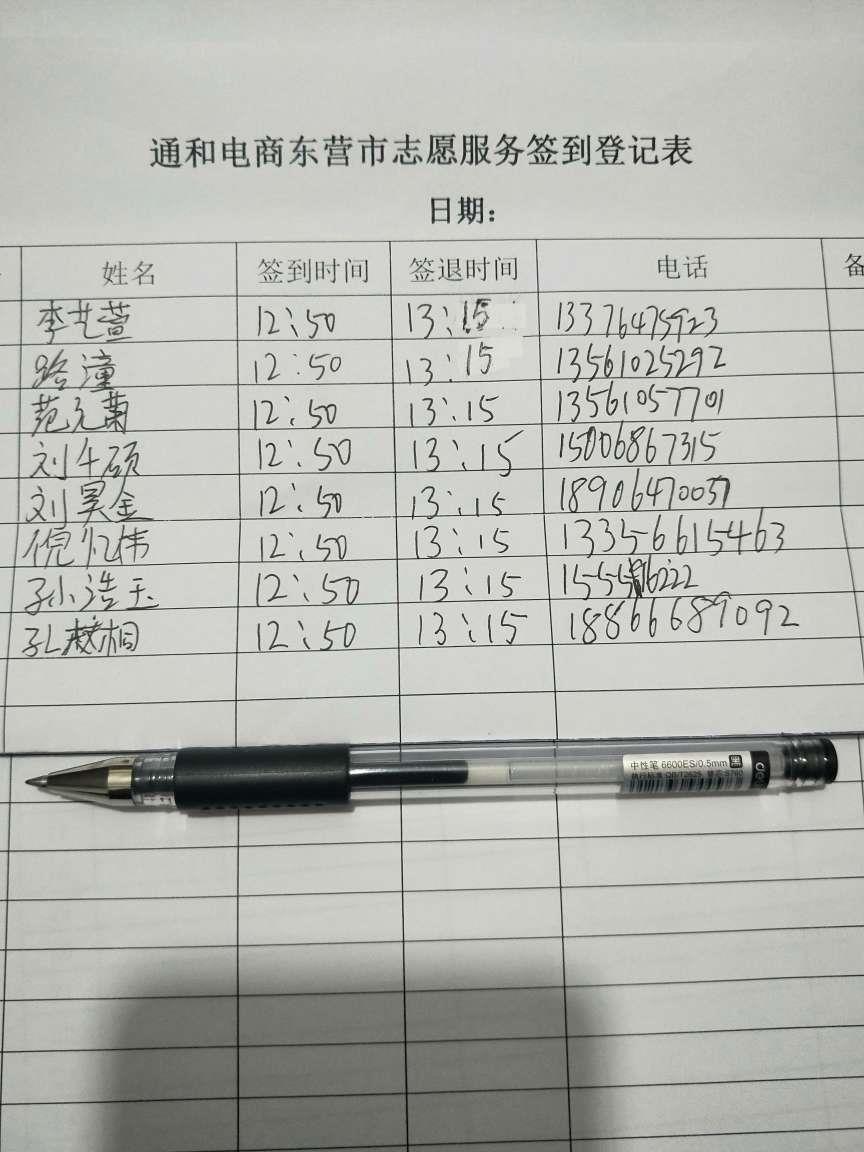 通和电商东营市志愿服务签到登记表
日期：
姓名 签到时间 签退时间 电话 备
李艺萱 12:50 13:15 13376475923
路潼 12:50 13:15 13561025292
范元菊 12:50 13:15 13561057701
刘千硕 12:50 13:15 15006867315
刘昊金 12:50 13:15 18906470037
倪忆伟 12:50 13:15 13356615463
孙浩玉 12:50 13:15
孔相 12:50 13:15 18866689092
中性笔 6600ES/0.5mm 黑
执行标准 QB/T2625